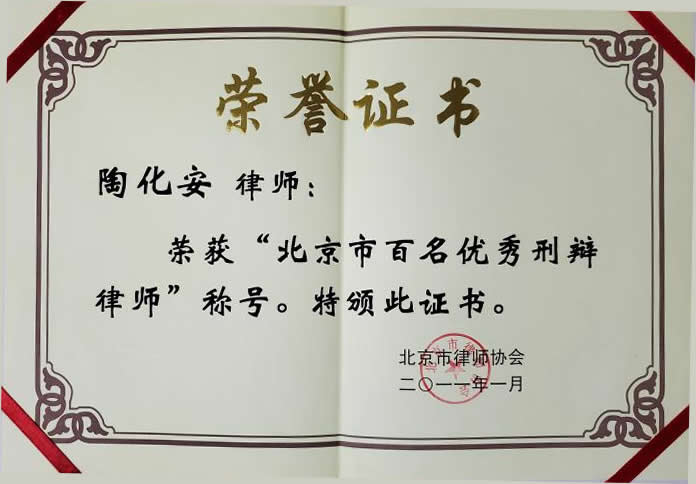 荣誉证书
陶化安 律师：
荣获“北京市百名优秀刑辩
律师”称号。特颁此证书。
北京市律师协会
二〇一一年一月